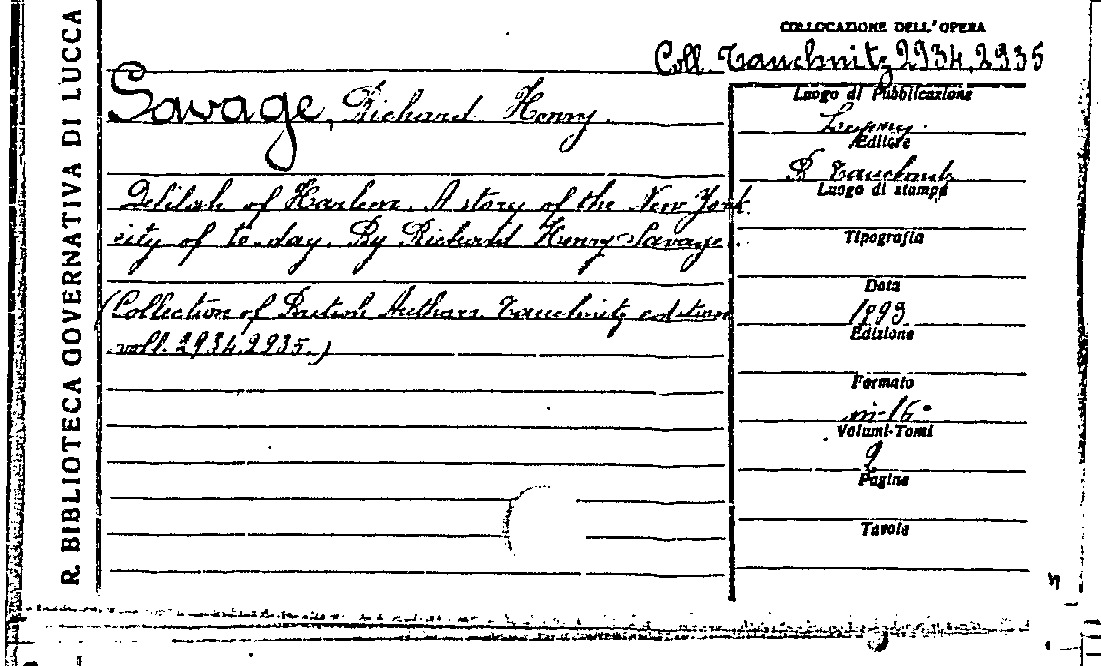 R. BIBLIOTECA GOVERNATIVA DI LUCCA
COLLOCAZIONE DELL'OPERA
Coll. Tauchnitz 2934.2935
Savage, Richard Henry.
Delilah of Harlem. A story of the New York
city of to-day. By Richard Henry Savage.
(Collection of British Authors. Tauchnitz edition
voll. 2934.2935.)
Luogo di Pubblicazione
Editore
B. Tauchnitz
Luogo di stampa
Tipografia
Data
1893
Edizione
Formato
in-16°
Volumi-Tomi
2
Pagine
Tavole